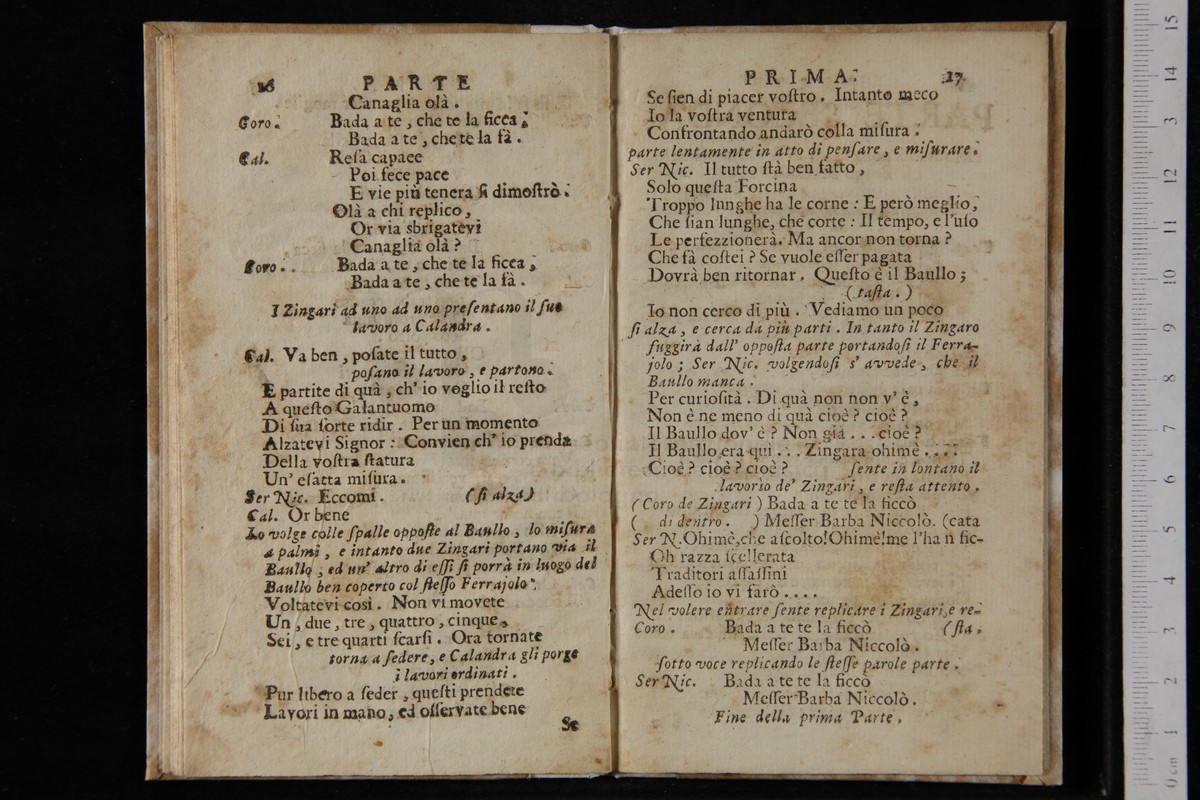 16 PARTE
Canaglia olà.
Coro. Bada a te, che te la ficca;
Bada a te, che te la fà.
Cal. Resa capace
Poi fece pace
E vie più tenera si dimostrò.
Olà a chi replico,
Or via sbrigatevi
Canaglia olà?
Coro. Bada a te, che te la ficca,
Bada a te, che te la fà.
I Zingari ad uno ad uno presentano il suo
lavoro a Calandra.
Cal. Va ben, posate il tutto,
posano il lavoro, e partono.
E partite di quà, ch' io voglio il resto
A questo Galantuomo
Di sua sorte ridir. Per un momento
Alzatevi Signor: Convien ch' io prenda
Della vostra statura
Un' esatta misura.
Ser Nic. Eccomi. (si alza)
Cal. Or bene
Lo volge colle spalle opposte al Baullo, lo misura
a palmi, e intanto due Zingari portano via il
Baullo, ed un' altro di essi si porrà in luogo del
Baullo ben coperto col stesso Ferrajolo.
Voltatevi così. Non vi movete
Un, due, tre, quattro, cinque,
Sei, e tre quarti scarsi. Ora tornate
torna a sedere, e Calandra gli porge
i lavori ordinati.
Pur libero a seder, questi prendete
Lavori in mano, ed osservate bene
Se
PRIMA. 17
Se sien di piacer vostro. Intanto meco
Io la vostra ventura
Confrontando andarò colla misura.
parte lentamente in atto di pensare, e misurare.
Ser Nic. Il tutto stà ben fatto,
Solo questa Forcina
Troppo lunghe ha le corne: E però meglio,
Che sian lunghe, che corte: Il tempo, e l'uso
Le perfezzionerà. Ma ancor non torna?
Che fà costei? Se vuole esser pagata
Dovrà ben ritornar. Questo è il Baullo;
(tasta.)
Io non cerco di più. Vediamo un poco
si alza, e cerca da più parti. In tanto il Zingaro
fuggirà dall' opposta parte portandosi il Ferra-
jolo; Ser Nic. volgendosi s' avvede, che il
Baullo manca.
Per curiosità. Di quà non non v' è,
Non è ne meno di quà cioè? cioè?
Il Baullo dov' è? Non già... cioè?
Il Baullo era qui... Zingara ohimè....
Cioè? cioè? cioè? sente in lontano il
lavorio de' Zingari, e resta attento.
(Coro de Zingari) Bada a te te la ficcò
( di dentro. ) Messer Barba Niccolò. (cata
Ser N. Ohimè, che ascolto! Ohimè! me l'ha n fic-
Oh razza scellerata
Traditori assassini
Adesso io vi farò....
Nel volere entrare sente replicare i Zingari, e re-
Coro. Bada a te te la ficcò (sta.
Messer Barba Niccolò.
sotto voce replicando le stesse parole parte.
Ser Nic. Bada a te te la ficcò
Messer Barba Niccolò.
Fine della prima Parte.
15
14
3
12
11
10
9
8
7
6
5
4
3
2
1
0 cm